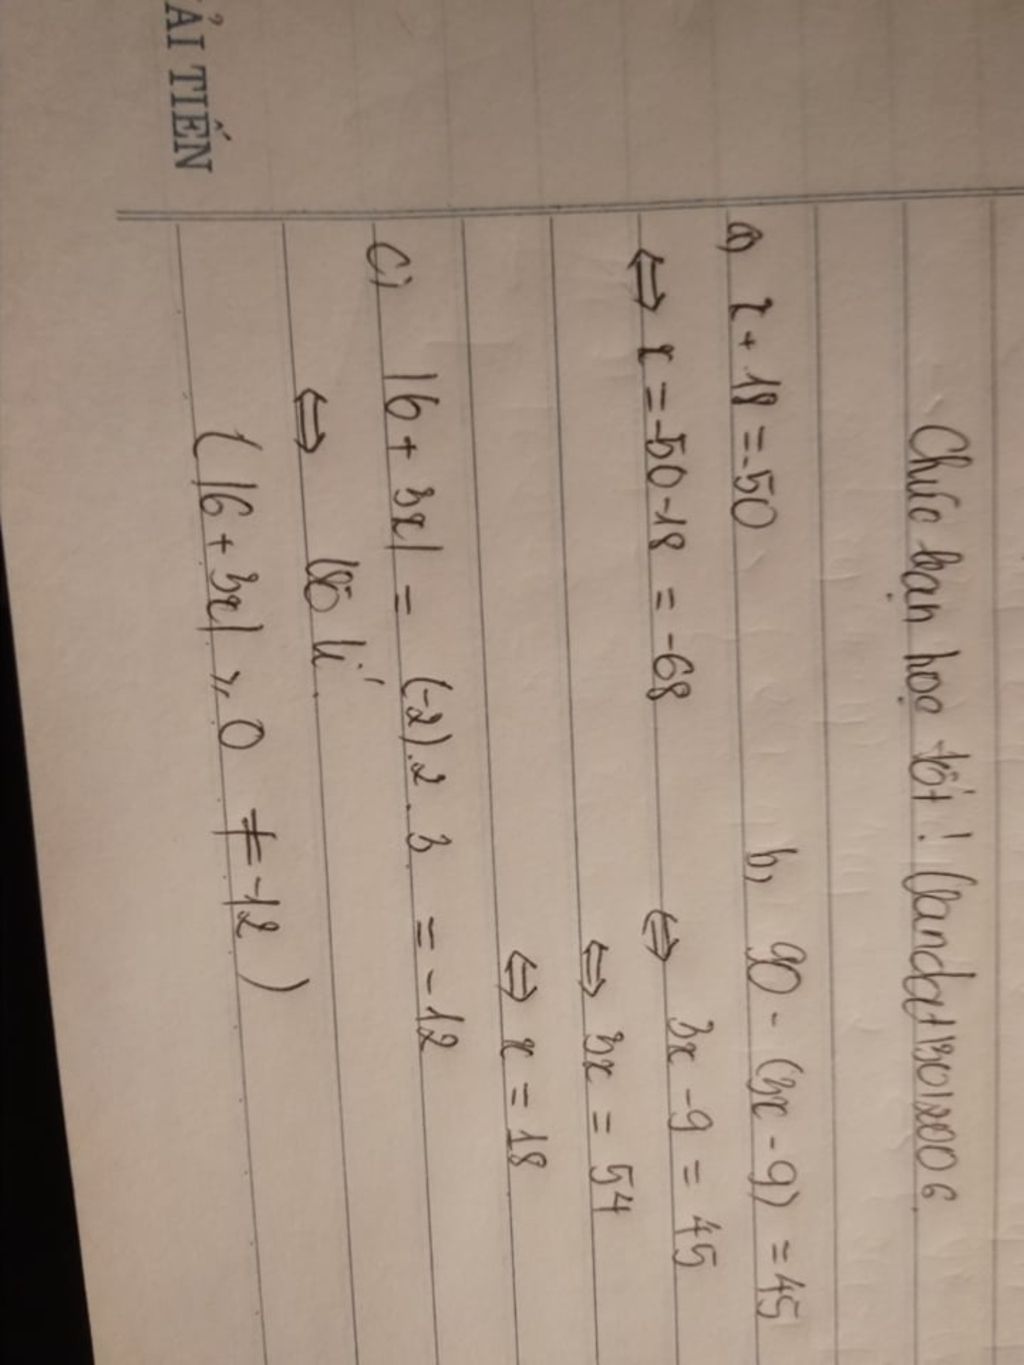 ẢI TIẾN
Chúc bạn học tốt!
a, x + 18 = -50
b, 90 - (3x - 9) = 45
⇔ x = -50 - 18 = -68
⇔ 3x - 9 = 45
⇔ 3x = 54
⇔ x = 18
c) |6 + 3x| = (-2).2.3 = -12
⇔ Vô lí.
(|6 + 3x| ≥ 0 ≠ -12)